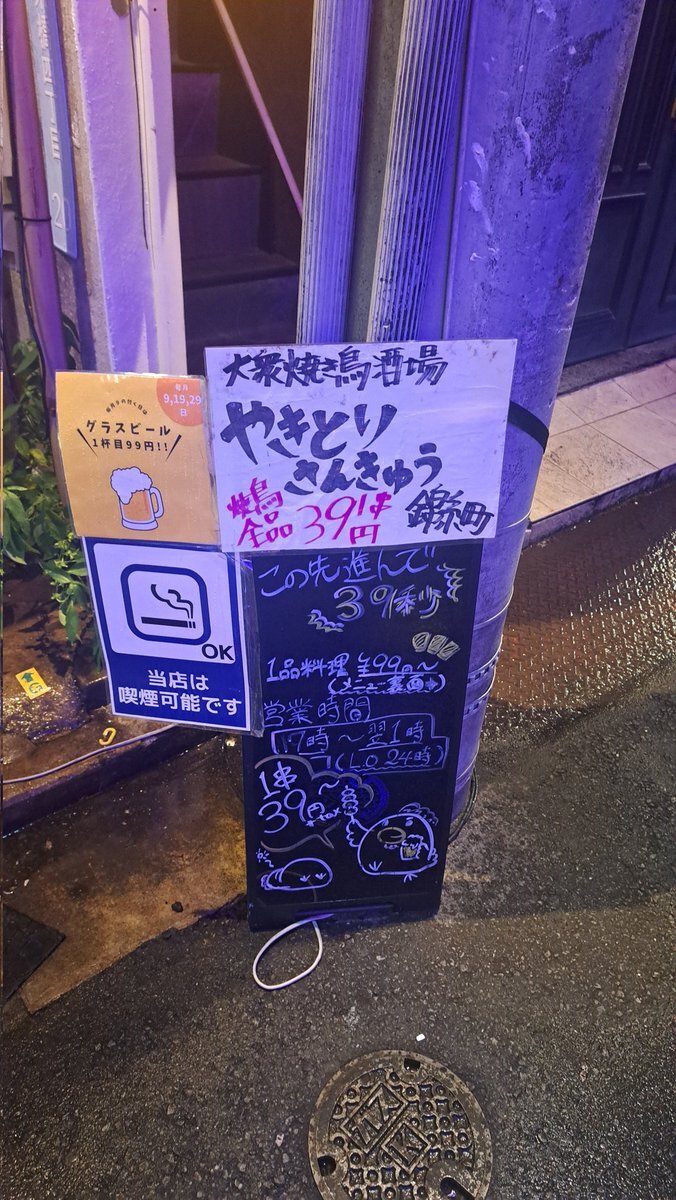 毎月
9,19,29
日
毎月9の付く日は
グラスビール
1杯目99円!!
大衆焼き鳥酒場
やきとり
さんきゅう
錦糸町
焼鳥
全品39円
1串
OK
当店は
喫煙可能です
この先進んで
39秒
1品料理 全99円〜
(メニュー裏面→)
営業時間
17時〜翌1時
(L.O 24時)
1串
39円〜
+tax